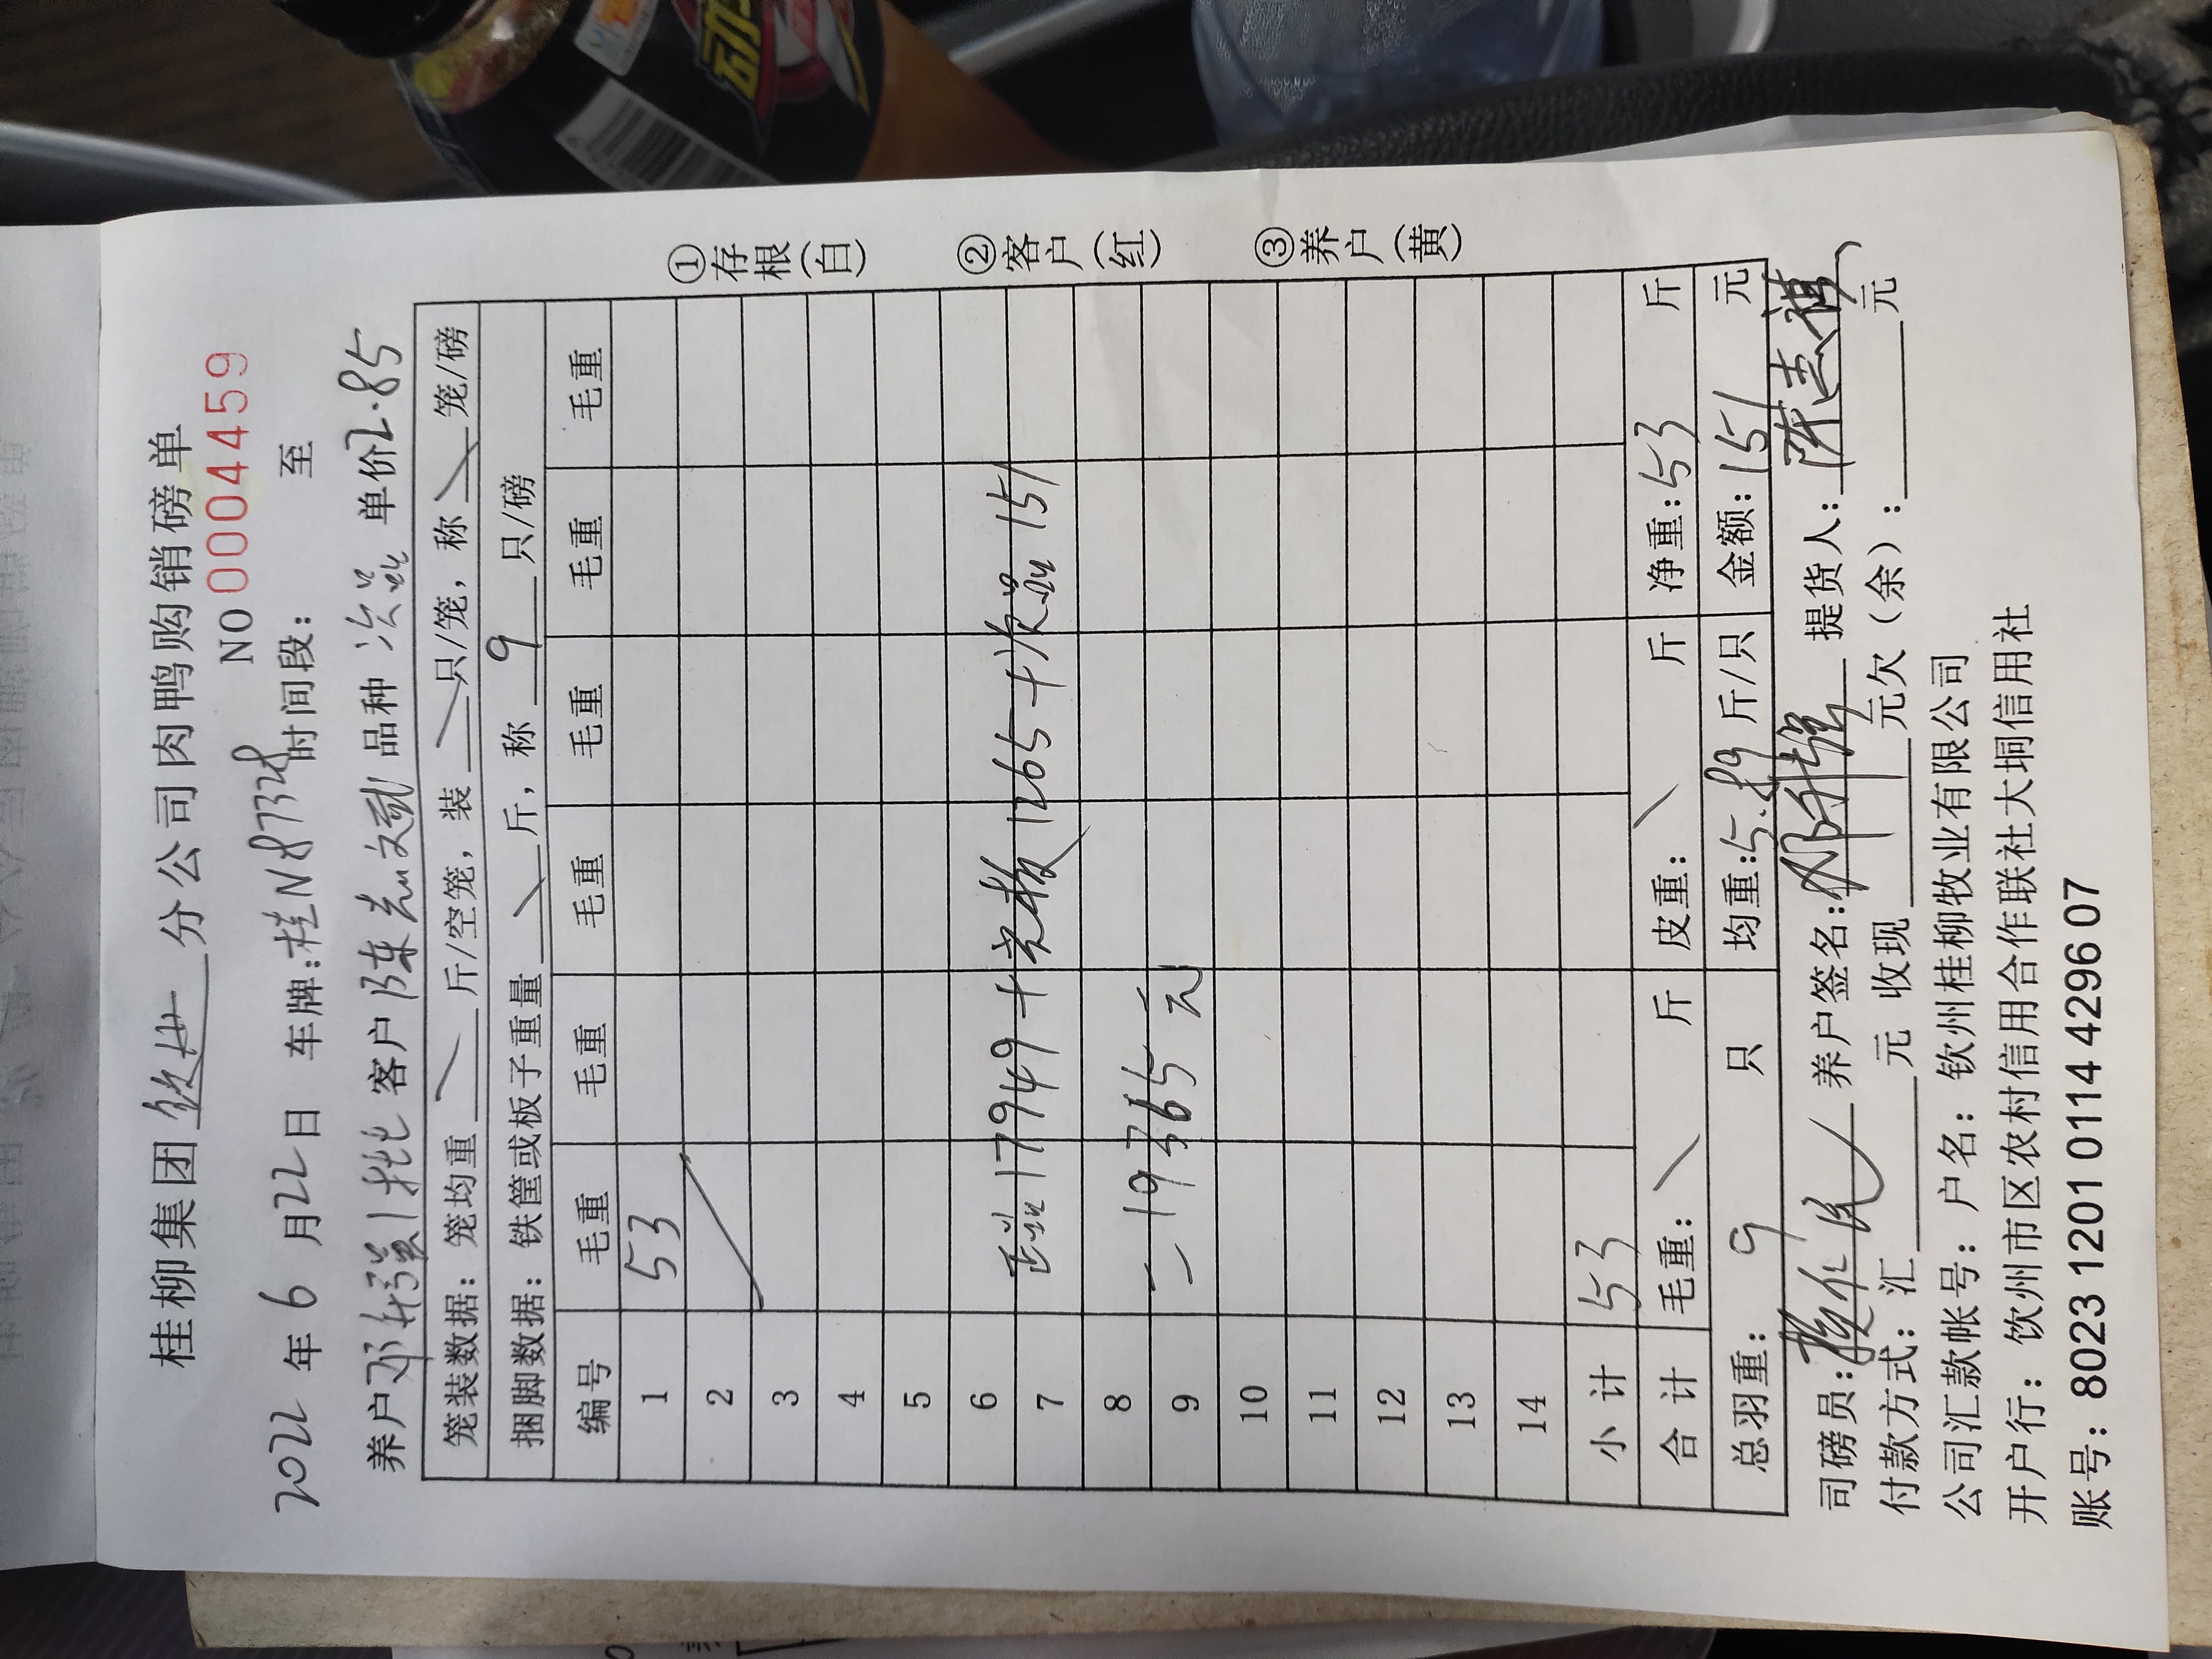 桂柳集团钦州分公司肉鸭购销磅单
NO 0004459
2022年6月22日 车牌:桂N87328 时间段: 至
养户邓升强1批 客户陈志斌 品种 次品 单价2.85
笼装数据:笼均重 斤/空笼,装 只/笼,称 笼/磅
捆脚数据:铁筐或板子重量 斤,称 9 只/磅
编号 毛重 毛重 毛重 毛重 毛重 毛重
1 53
2
3
4
5
6
7
正品17949+光板1265+次品151
8
9
=19365元
10
11
12
13
14
小计 53
合计 毛重: 斤 皮重: 斤 净重:53 斤
总羽重: 9 只 均重:5.89斤/只 金额:151 元
①存根(白)
②客户(红)
③养户(黄)
司磅员: 养户签名:邓升强 提货人:陈志祺
付款方式:汇 元 收现 元欠(余): 元
公司汇款帐号:户名:钦州桂柳牧业有限公司
开户行:饮州市区农村信用合作联社大垌信用社
账号:8023 1201 0114 4296 07
动